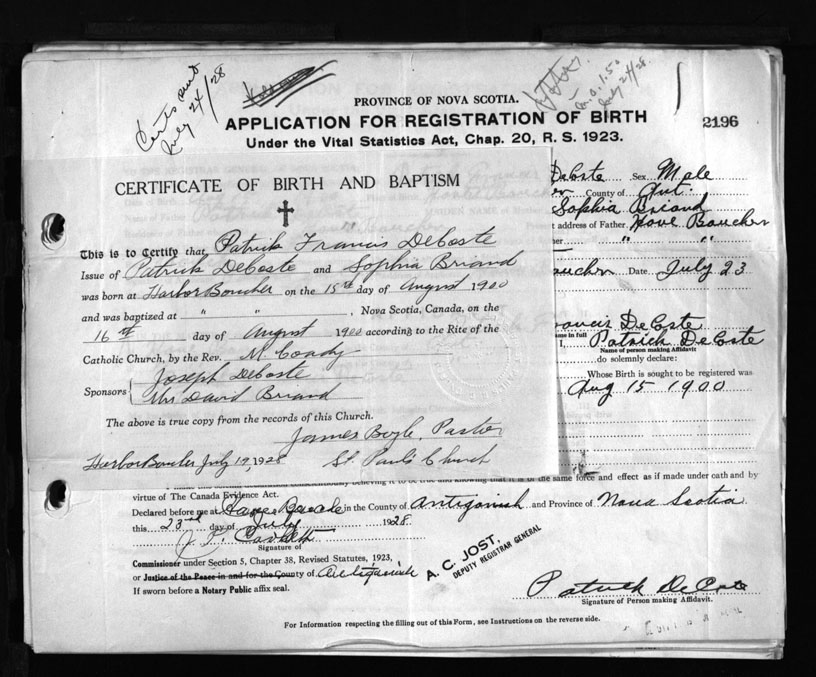 Certs sent
July 24/28
July 24/28
PROVINCE OF NOVA SCOTIA.
APPLICATION FOR REGISTRATION OF BIRTH
Under the Vital Statistics Act, Chap. 20, R. S. 1923.
2196
CERTIFICATE OF BIRTH AND BAPTISM
This is to Certify that Patrick Francis DeCoste
Issue of Patrick DeCoste and Sophia Briand
was born at Harbor Boucher on the 15th day of August 1900
and was baptized at " " , Nova Scotia, Canada, on the
16th day of August 1900 according to the Rite of the
Catholic Church, by the Rev. M. Coady
Sponsors Joseph DeCoste
Mrs David Briand
The above is true copy from the records of this Church.
James Boyle, Pastor
Harbor Boucher July 19, 1928 St. Paul's Church
DeCoste Sex Male
County of Ant.
Sophia Briand
address of Father Boucher
" "
Boucher Date July 23
Francis DeCoste
name in full
I, Patrick DeCoste
Name of person making Affidavit.
do solemnly declare:
Whose Birth is sought to be registered was
Aug 15 1900
believing it to be true and knowing that it is of the same force and effect as if made under oath and by
virtue of The Canada Evidence Act.
Declared before me at in the County of Antigonish and Province of Nova Scotia
this 23rd day of July 1928.
Signature of
Commissioner under Section 5, Chapter 38, Revised Statutes, 1923,
or Justice of the Peace in and for the County of Antigonish
If sworn before a Notary Public affix seal.
A. C. JOST,
DEPUTY REGISTRAR GENERAL
Patrick DeCoste
Signature of Person making Affidavit.
For Information respecting the filling out of this Form, see Instructions on the reverse side.